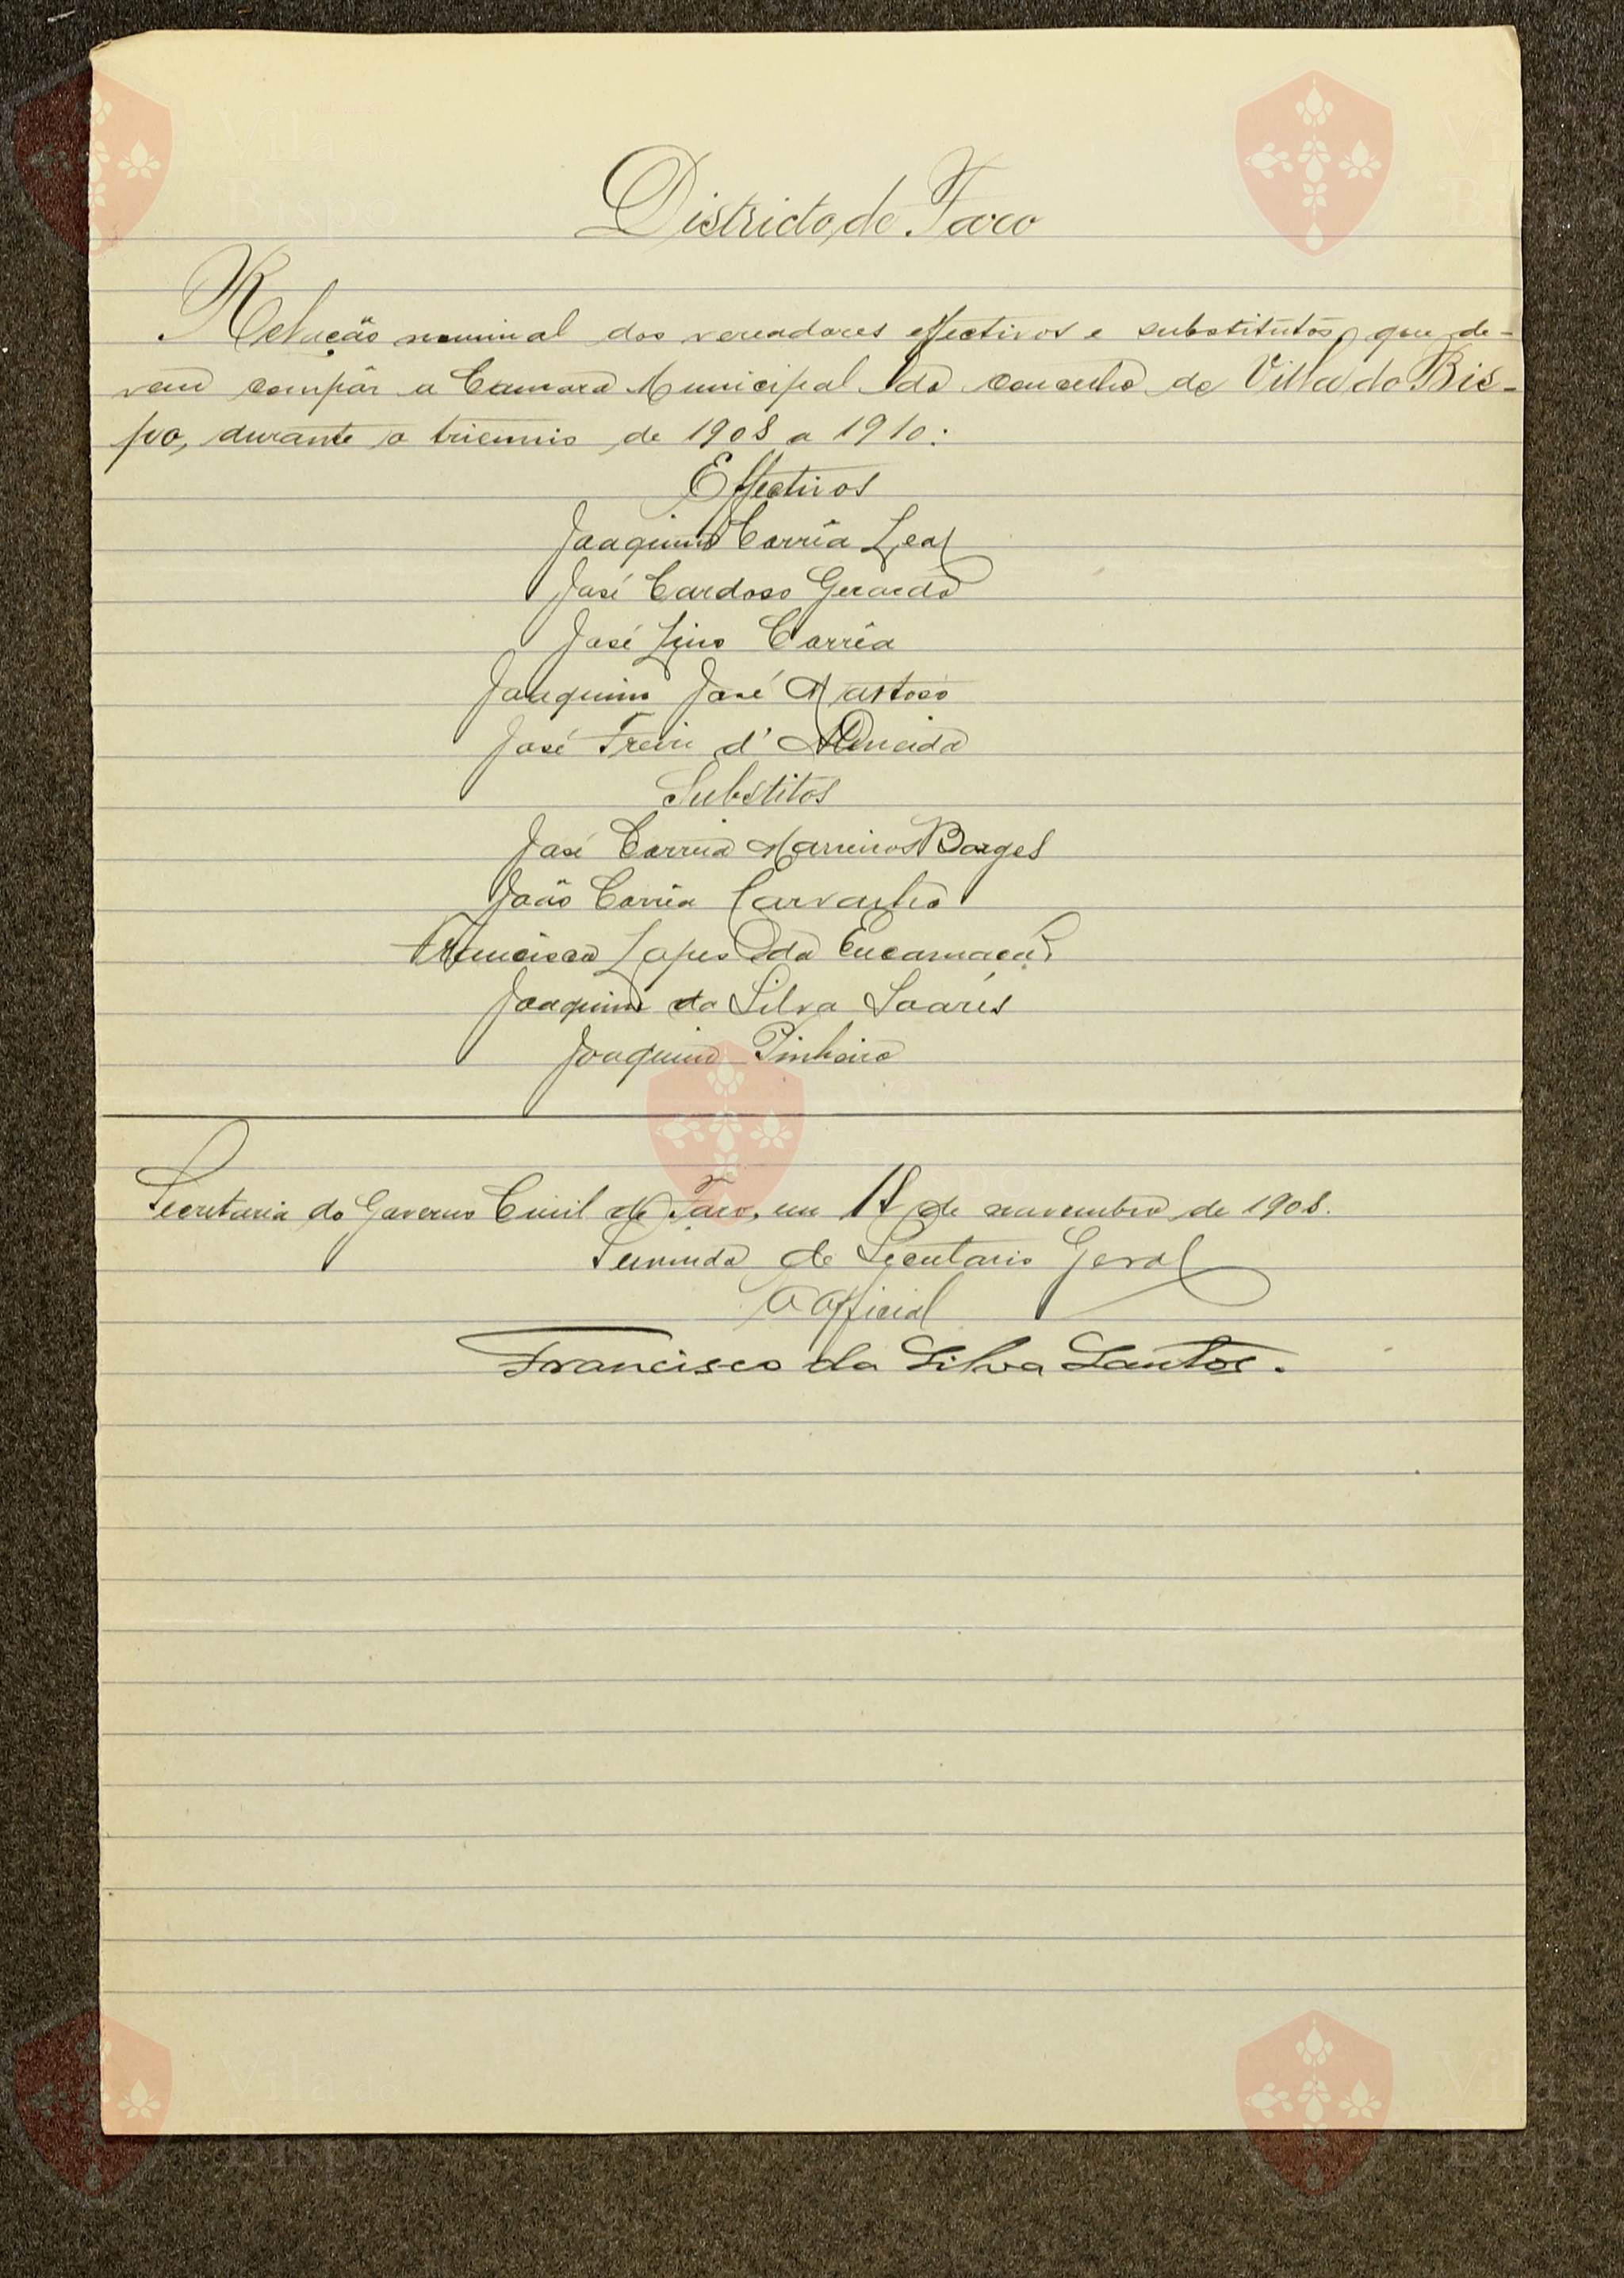 Districto de Faro
Relação nominal dos vereadores effectivos e substitutos, que de-
vem compôr a Camara Municipal do concelho de Villa do Bis-
po, durante o triennio de 1908 a 1910:
Effectivos
Joaquim Corrêa Leal
José Cardoso Gerardo
José Lino Corrêa
Joaquim José
José Freire d'Almeida
Substitos
José Correia Marreiros Borges
João Corrêa Carvalho
Francisco Lopes da Encarnação
Joaquim da Silva Soares
Joaquim Pinheiro
Secretaria do Governo Civil de Faro, em 18 de novembro de 1908.
Servindo de Secretario Geral
O Official
Francisco da Silva Santos.
Vila do
Bispo